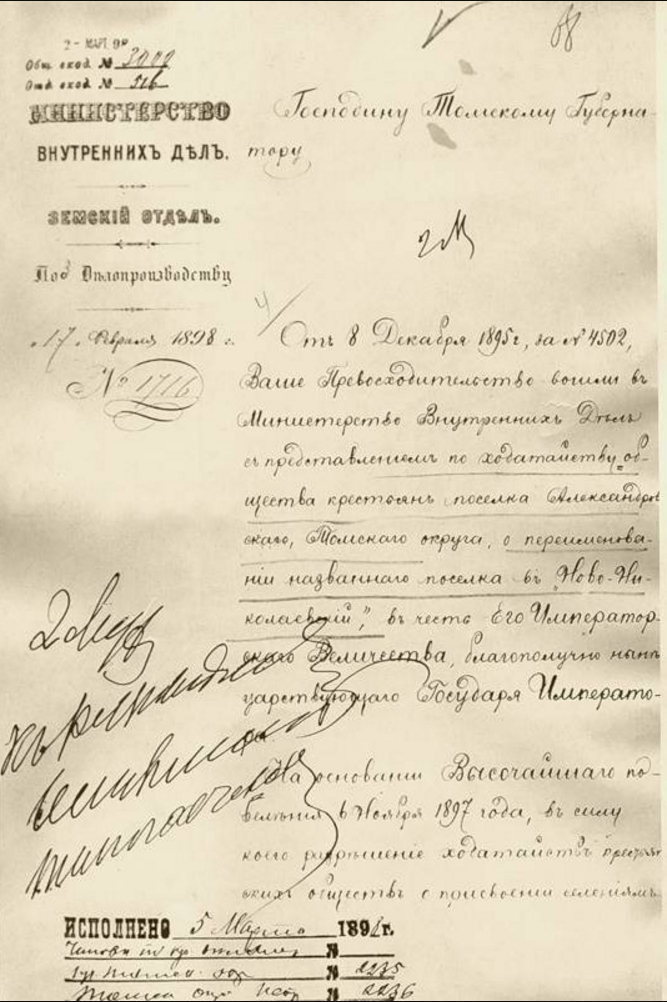 2 - МАРТ. 98
Общ. вход. № 3000
Отд. вход. № 516
МИНИСТЕРСТВО
ВНУТРЕННИХЪ ДѢЛЪ.
ЗЕМСКІЙ ОТДѢЛЪ.
По Дѣлопроизводству
„17„ Февраля 1898 г.
№ 1716
68
Господину Томскому Губерна-
тору
Отъ 8 Декабря 1895 г., за № 4502,
Ваше Превосходительство вошли въ
Министерство Внутреннихъ Дѣлъ
съ представленіемъ по ходатайству об-
щества крестьянъ поселка Александров
скаго, Томскаго округа, о переименова-
ніи названнаго поселка въ "Ново-Ни-
колаевскій", въ честь Его Император-
скаго Величества, благополучно нынѣ
царствующаго Государя Императо-
ра.
На основаніи Высочайшаго по-
велѣнія 6 Ноября 1897 года, въ силу
коего разрѣшеніе ходатайствъ крестьян
скихъ обществъ о присвоеніи селеніямъ
2 Мар
ИСПОЛНЕНО 5 Марта 1898 г.
№
№ 2235
№ 2236